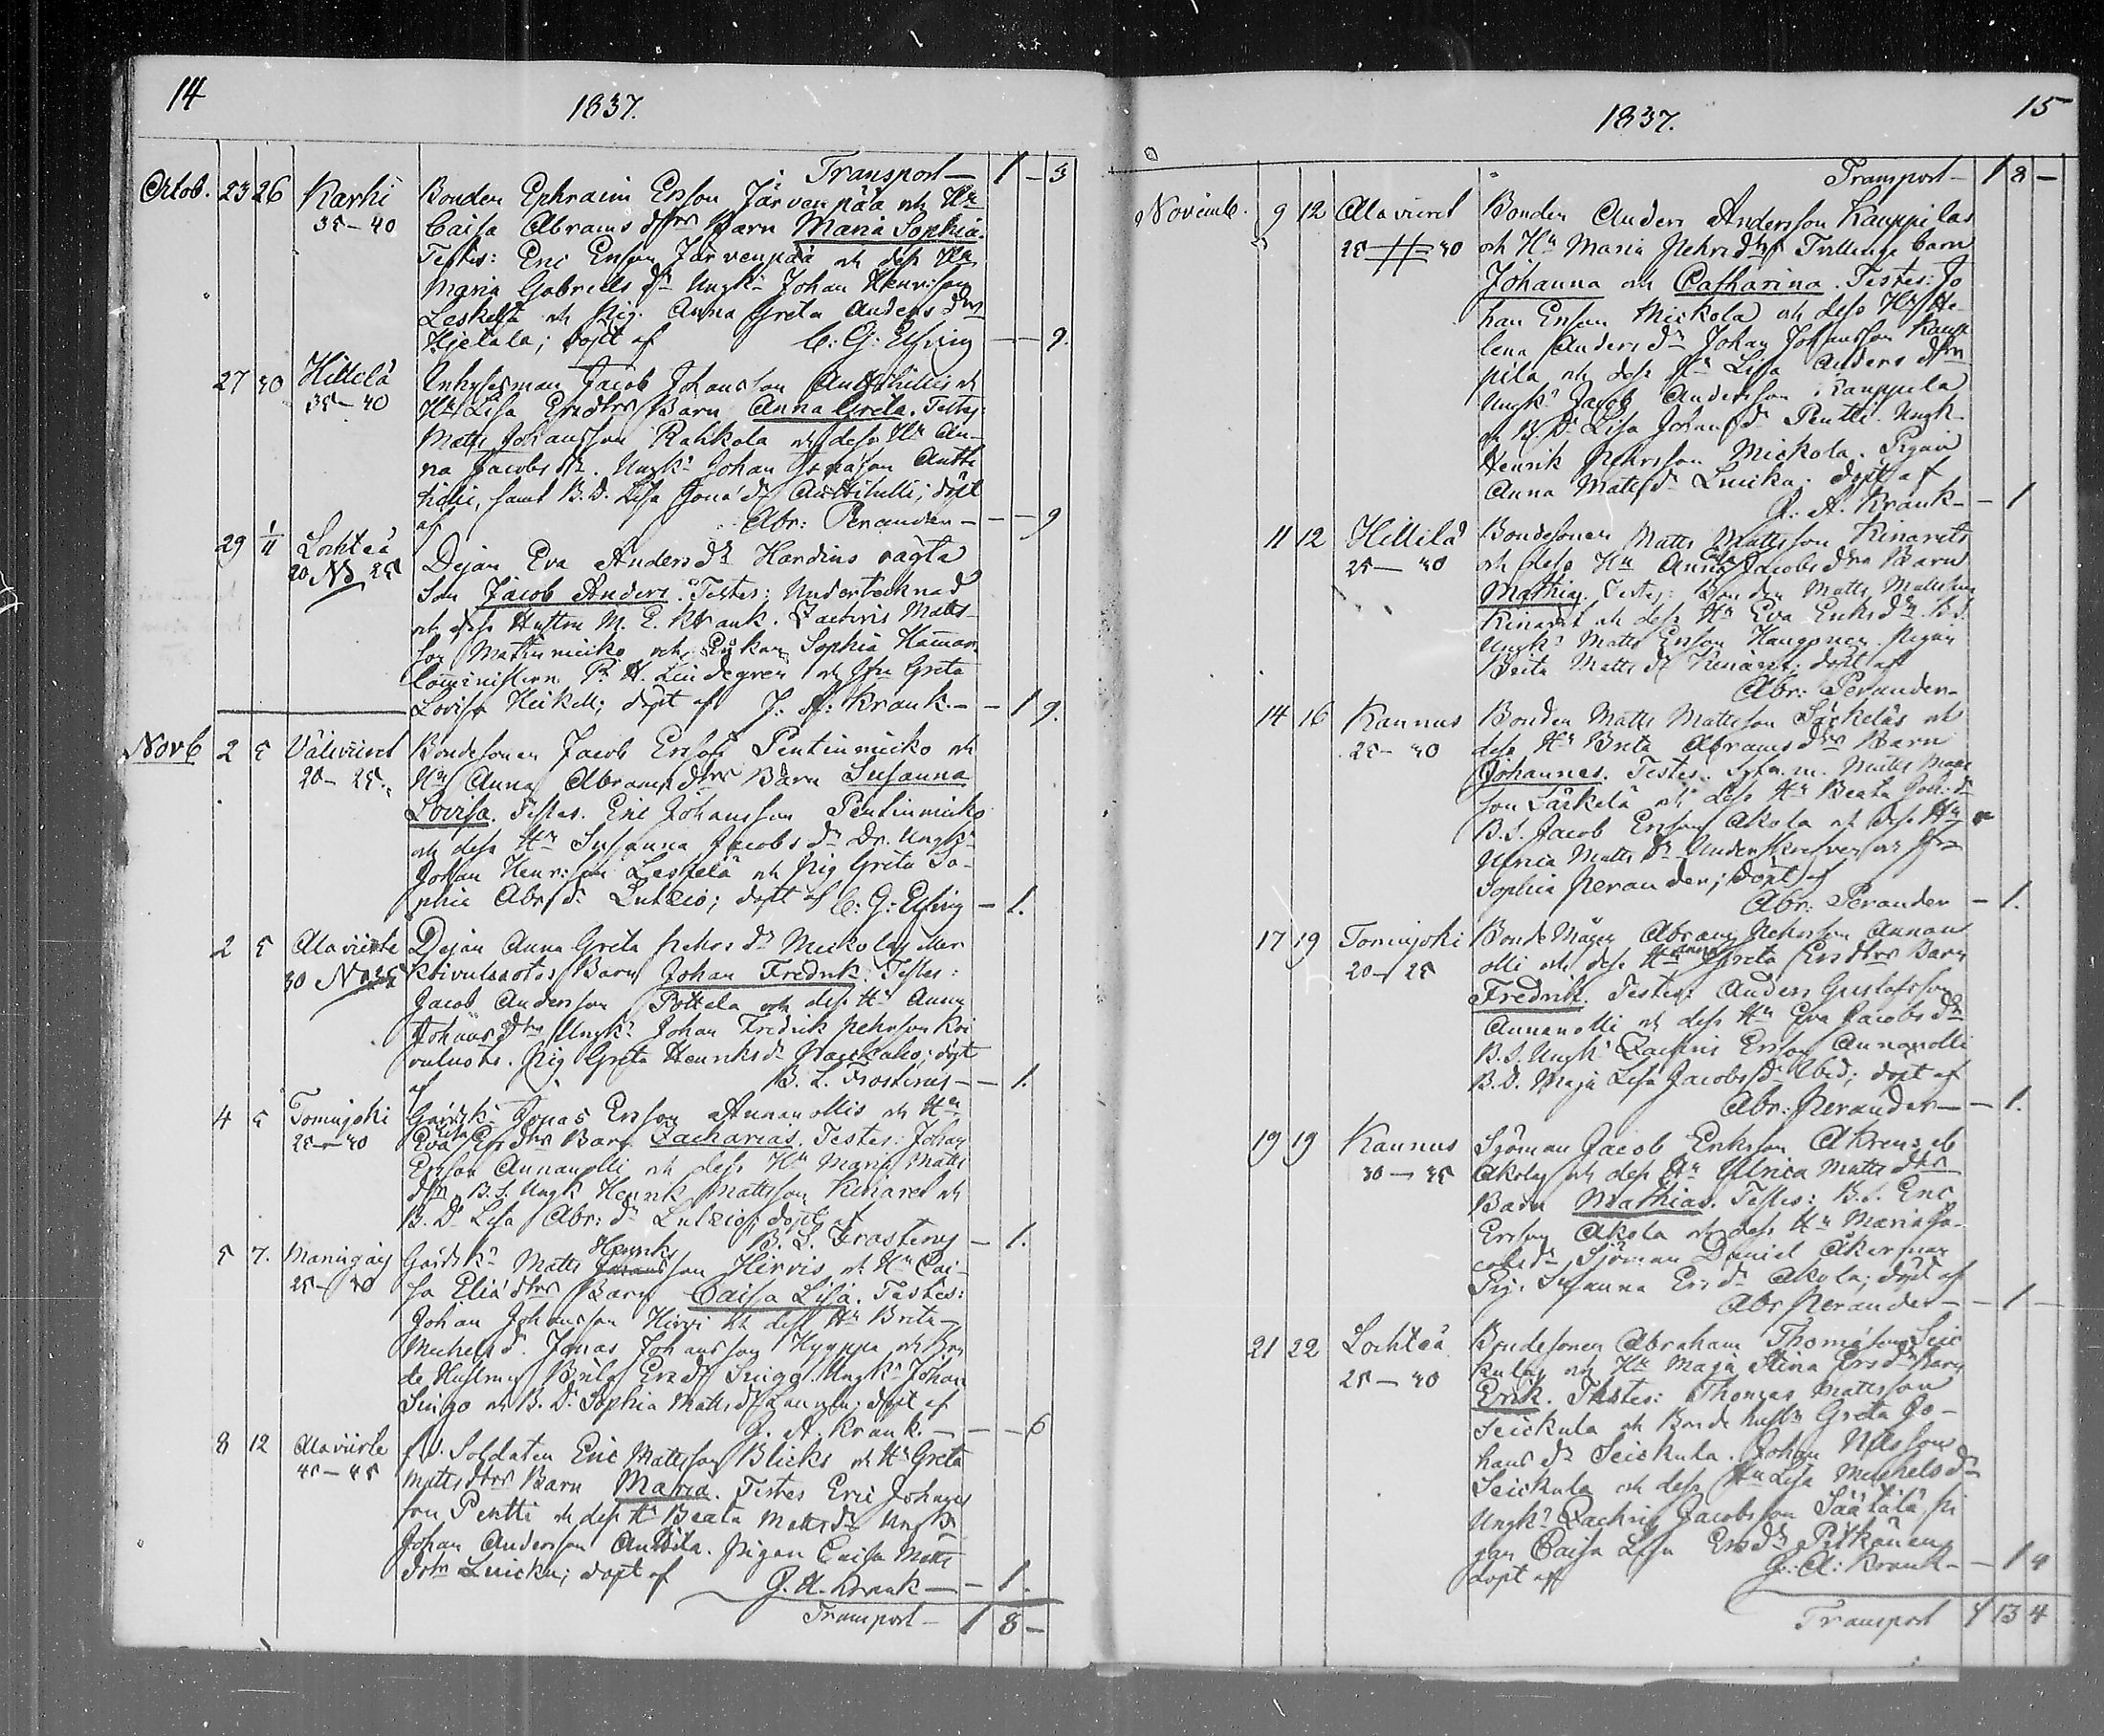 14
1837.
Transport — 1 — 3
Octob. 23 26 Karhi Bonden Ephraim Ersson Järvenpää och Hu
35—40 Caisa Abrams dtrs Barn Maria Sophia.
Testes: Eric Ersson Järvenpää och dess Hu
Maria Gabriels dr Ungk. Johan Henrisson
Leskelä och Pig. Anna Greta Anders dtr
Hietala; döpt af C: G: Elfving — — 9.
27 30 Hillilä Inhysesman Jacob Johansson Anttihillis och
35—40 Hu Lisa Ericdtrs Barn Anna Greta. Testes:
Matts Johansson Rahkola och dess Hu An-
na Jacobs dr. Ungk. Johan Jonasson Antti
hilli, samt B.D. Lisa Jona dr Anttihilli; döpt
af Abr: Perander — — 9
29 1/11 Lochteå Dejan Eva Anders dr Hardins oägta
20 N 25 Son Jacob Anders. Testes: Undertecknad
och dess Hustru M. E. Krank. Zachris Matts-
son Mattinmicko och Enkan Sophia Hamar.
Comministern P. H. Lindegren och Jfru Greta
Lovisa Heikell; döpt af J. A: Krank. — 1 9.
Novb 2 5 Väliviiret Bondesonen Jacob Ersson Pentinmicko och
20—25. Hu Anna Abrams dtrs Barn Susanna
Lovisa. Testes. Eric Johansson Pentinmicko
och dess Hu Susanna Jacobs dr Dr. Ungk.
Johan Henr:son Leskelä och Pig Greta So-
phia Abr dr Luhzio; döpt af C: G: Elfving — 1.
2 5 Alaviirte Dejan Anna Greta Pehrs dr Mickolas eller
30 N 35 Koivuluotos Barn Johan Fredrik. Testes:
Jacob Andersson Pöttelä och dess Hu Anna
Johans dtr Ungk. Johan Fredrik Pehrsson Koi
vuluoto. Pig Greta Henriks dr Wackaho; döpt
af B. L. Frosterus — — 1.
4 5 Tomujoki Gårdsk. Jonas Ersson Annanollis och Hu
25—30 Eva Lisa Ersdtrs Barn Zacharias. Testes: Johan
Ersson Annanolli och dess Hu Maria Matts
dtr. B.S. Ungk Henrik Mattsson Kinaret och
B. Dr Lisa Abr: dr Luhzio; döpt af
B. L. Frosterus — 1.
5 7. Maningais Gårdsk. Matts Henriks Johansson Hirvis och Hu Cai-
25—30 sa Eliædtrs Barn Caisa Lisa. Testes:
Johan Johansson Hirvi och dess Hu Brita
Michels d. Jonas Johansson Hyyppä och Bon
de Hustrun Brita Ers dr Siugo. Ungk. Johan
Siugo och B. Dr Sophia Matts dr; döpt af
J. A. Krank. — — 6
8 12 Alaviirte f.d. Soldaten Eric Mattsson Blicks och Hu Greta
45—45 Mattsdtrs Barn Maria. Testes Eric Johans
son Pentti och dess Hu Beata Matts dr Ungk.
Johan Andersson Anttila. Pigan Caisa Matts
dotr Luicku; döpt af J. A. Krank — — 1.
Transport — 1 8 —
1837.
15
Transport — 1 8 —
Novemb. 9 12 Alaviiret Bonden Anders Andersson Kauppilas
25—30 och Hu Maria Pehrs dtrs Tvillinge barn
Johanna och Catharina. Testes: Jo
han Ersson Mickola och dess Hu He-
lena Anders dr Johan Johansson Kaup
pila och dess Hu Lisa Anders dtr
Ungk. Jacob Andersson Kauppila
och B. Dr Lisa Johans dr Pentti. Ungk.
Henrik Pehrsson Mickola. Pigan
Anna Matts dr Luicku. döpt af
J. A. Krank — 1
11 12 Hillilä Bondesonen Matts Mattsson Kinarets
25—30 och dess Hu Anna Caisa Jacobs dtrs Barn
Mathias. Testes: Bonden Matts Mattsson
Kinaret och dess Hu Eva Eriks dr. B.S.
Ungk. Matts Ersson Hangonen. Pigan
Brita Matts dr Kinaret: döpt af
Abr: Perander
14 16 Kannus Bonden Matts Mattsson Särkeläs och
25—30 dess Hu Brita Abrams dtrs Barn
Johannes. Testes. Matts Matts
son Särkelä och dess Hu Beata Joh: dr
B.S. Jacob Ersson Akola och dess Hu
Ulrica Matts dr Underskrefven och Jfru
Sophia Perander; döpt af
Abr: Perander — 1.
17 19 Tomujoki Bonde Mågen Abram Pehrsson Annan
20—25 olli och dess Hu Anna Greta Ersdtrs Barn
Fredrik. Testes: Anders Gustafsson
Annanolli och dess Hu Eva Jacobs dr
B.S. Ungk. Zachris Ersson Annanolli
B.D. Maja Lisa Jacobs dr ibid; döpt af
Abr: Perander — — 1.
19 19 Kannus Sjöman Jacob Eriksson Akrens el
30—35 Akolas och dess Hu Ulrica Matts dtrs
Barn Mathias. Testes: B.S. Eric
Ersson Akola och dess Hu Maria Ja-
cobs dr Sjöman Daniel Åkerman
Pig. Susanna Ers dr Akola; döpt af
Abr Perander — — 1 —
21 22 Lochteå Bondesonen Abraham Thomæson Seic
25—30 kulas och Hu Maja Stina Ers dr Barn
Erik. Testes: Thomas Mattsson
Seickula och Bonde hustr Greta Jo-
hans dr Seickula. Johan Nilsson
Seickula och dess Hu Lisa Michels dr
Ungk. Zachris Jacobsson Säätälä pi
gan Caisa Lisa Ers dr Pitkänen
döpt af J: A: Krank — 1 4
Transport 1 13 4